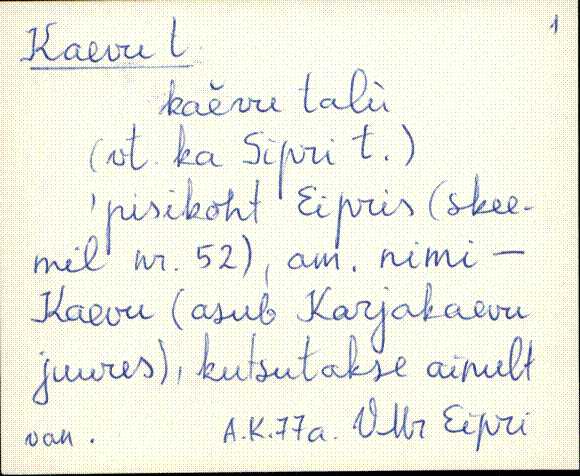 1
Kaevu t.
kaěvu talù
(vt. ka Sipri t.)
'pisikoht Eipris (skee-
mil nr. 52), am. nimi —
Kaevu (asub Karjakaevu
juures), kutsutakse ainult
van. A.K.77a. VMr Eipri